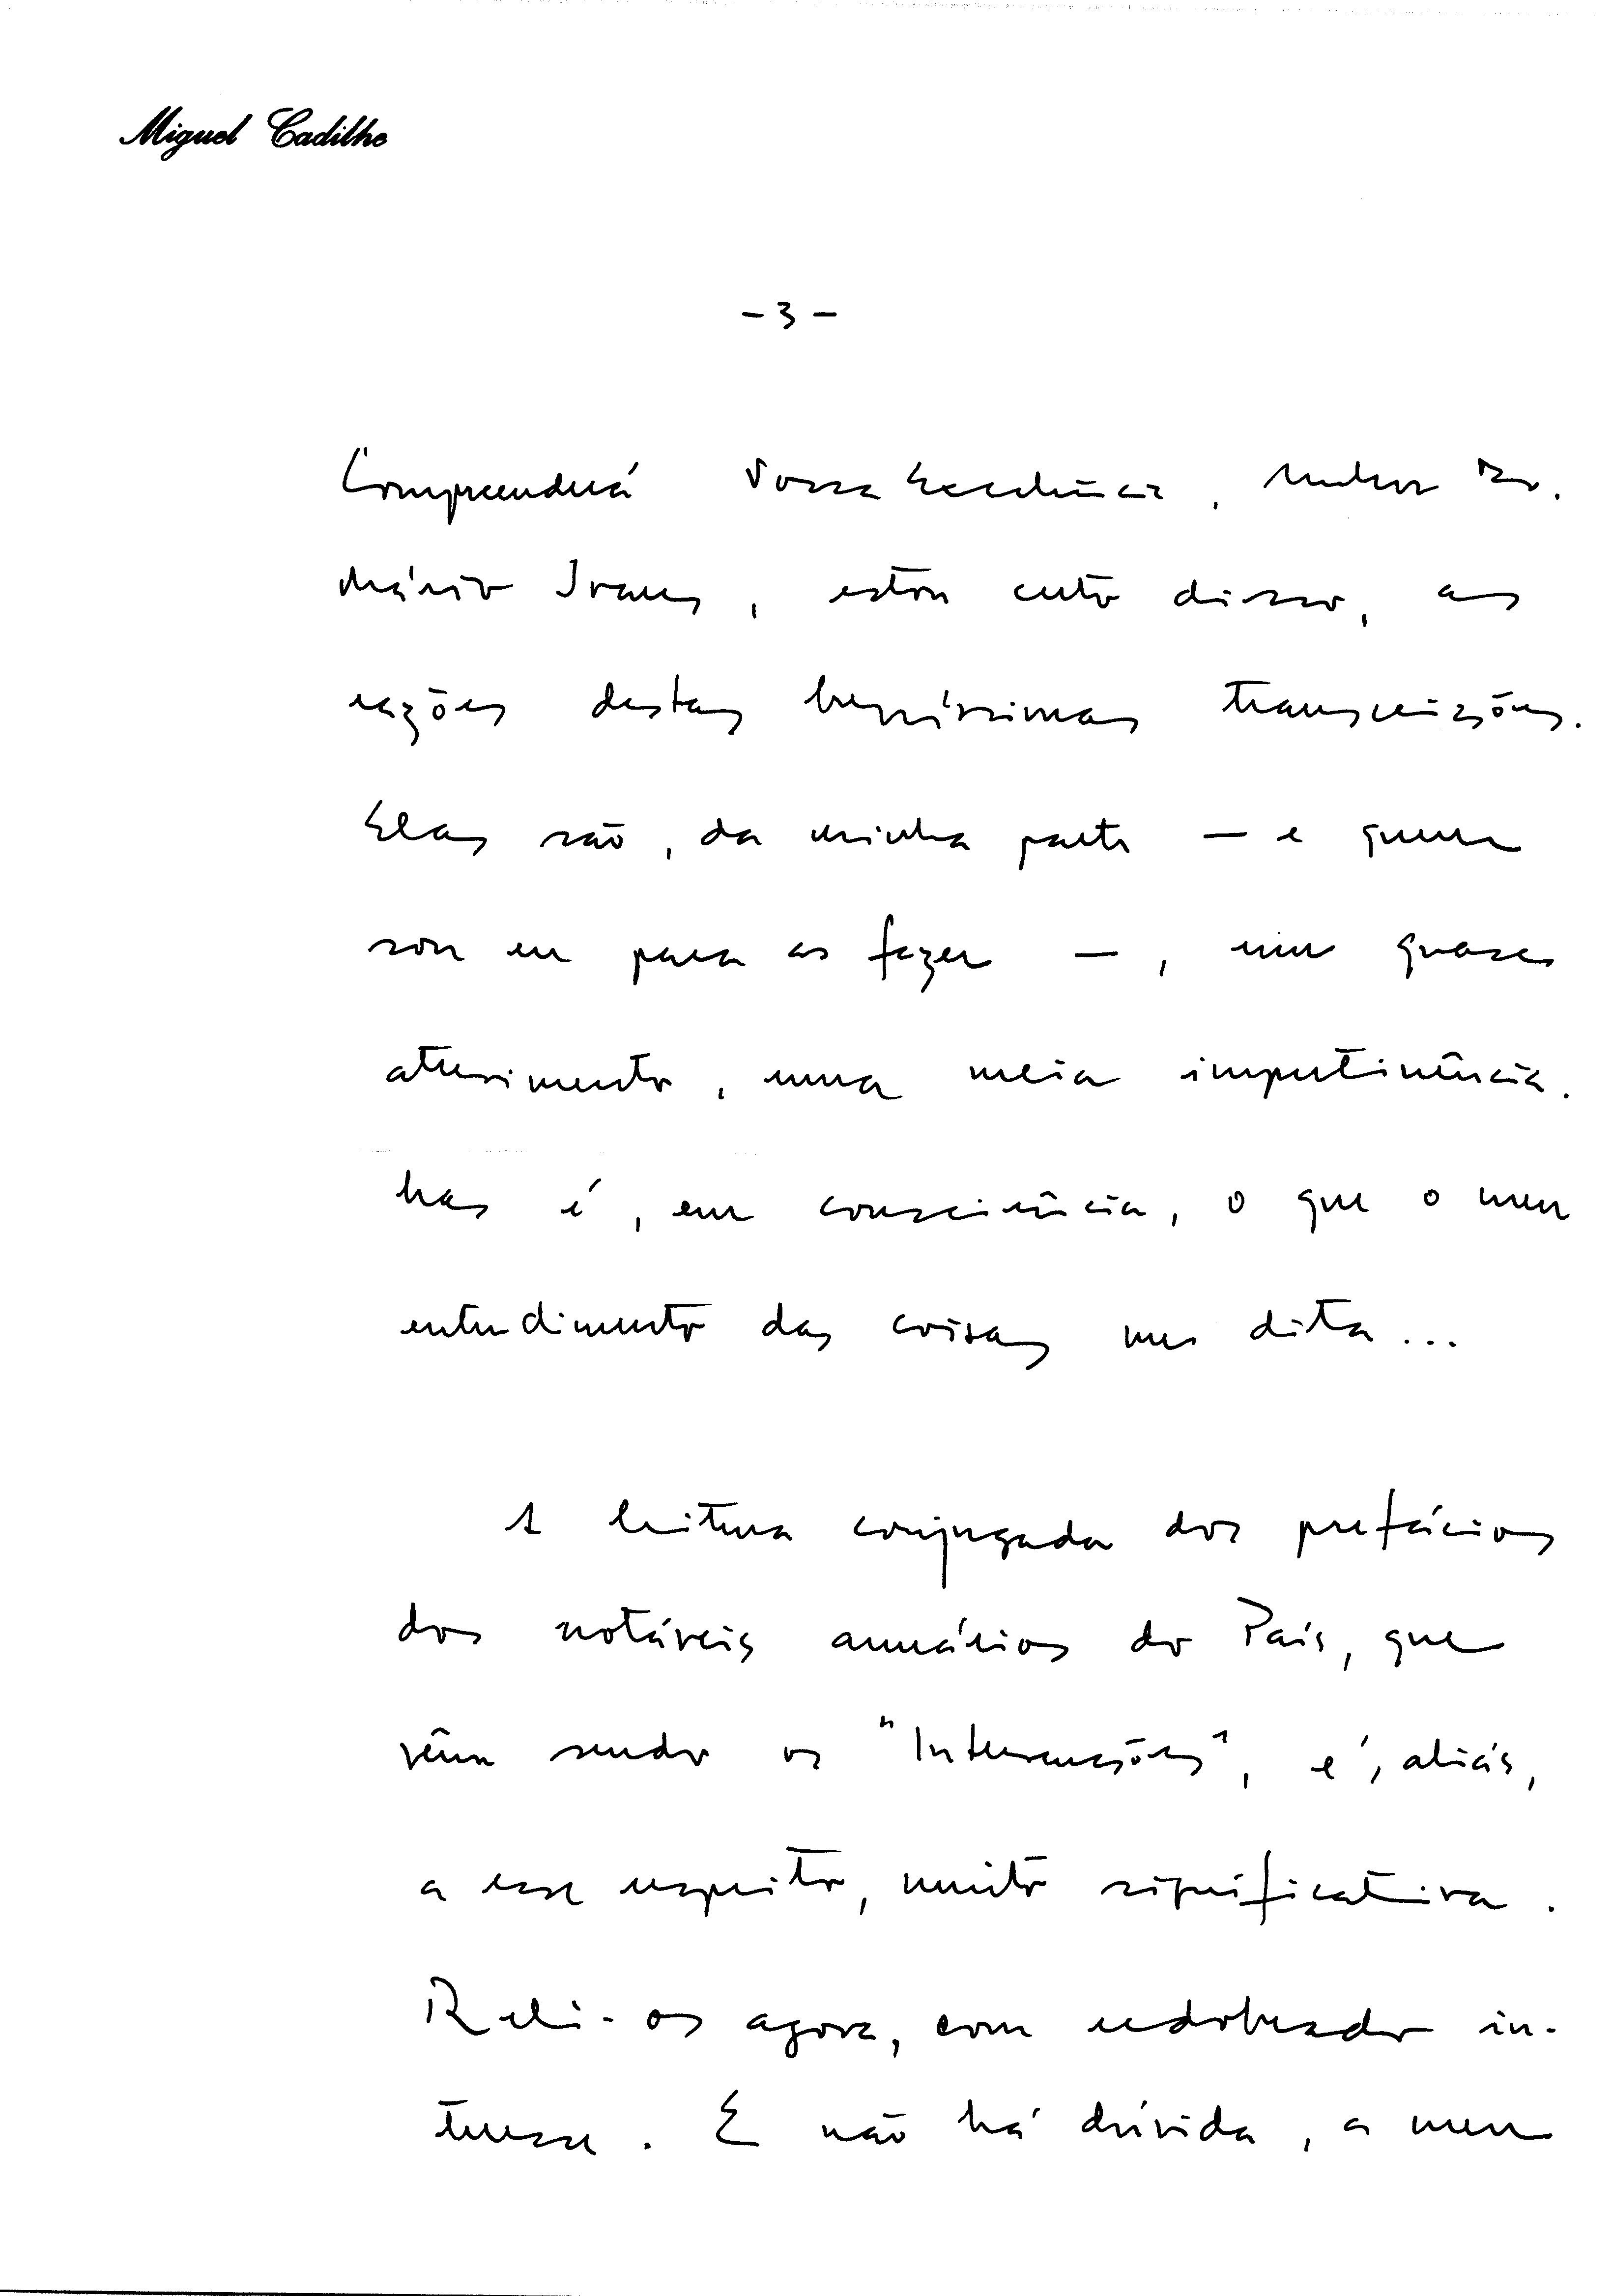 Miguel Cadilhe
- 3 -
Compreenderá Vossa Excelência, Senhor Dr.
Mário Soares, estou certo disso, as
razões destas brevíssimas transcrições.
Elas são, da minha parte — e quem
sou eu para as fazer —, um quase
atrevimento, uma meia impertinência.
Mas é, em consciência, o que o meu
entendimento das coisas me dita...
A leitura conjugada dos prefácios
dos notáveis anuários do País, que
vêm sendo os "Intervenções", é, aliás,
a esse respeito, muito significativa.
Reli-os agora, com redobrado in-
teresse. E não há dúvida, a meu